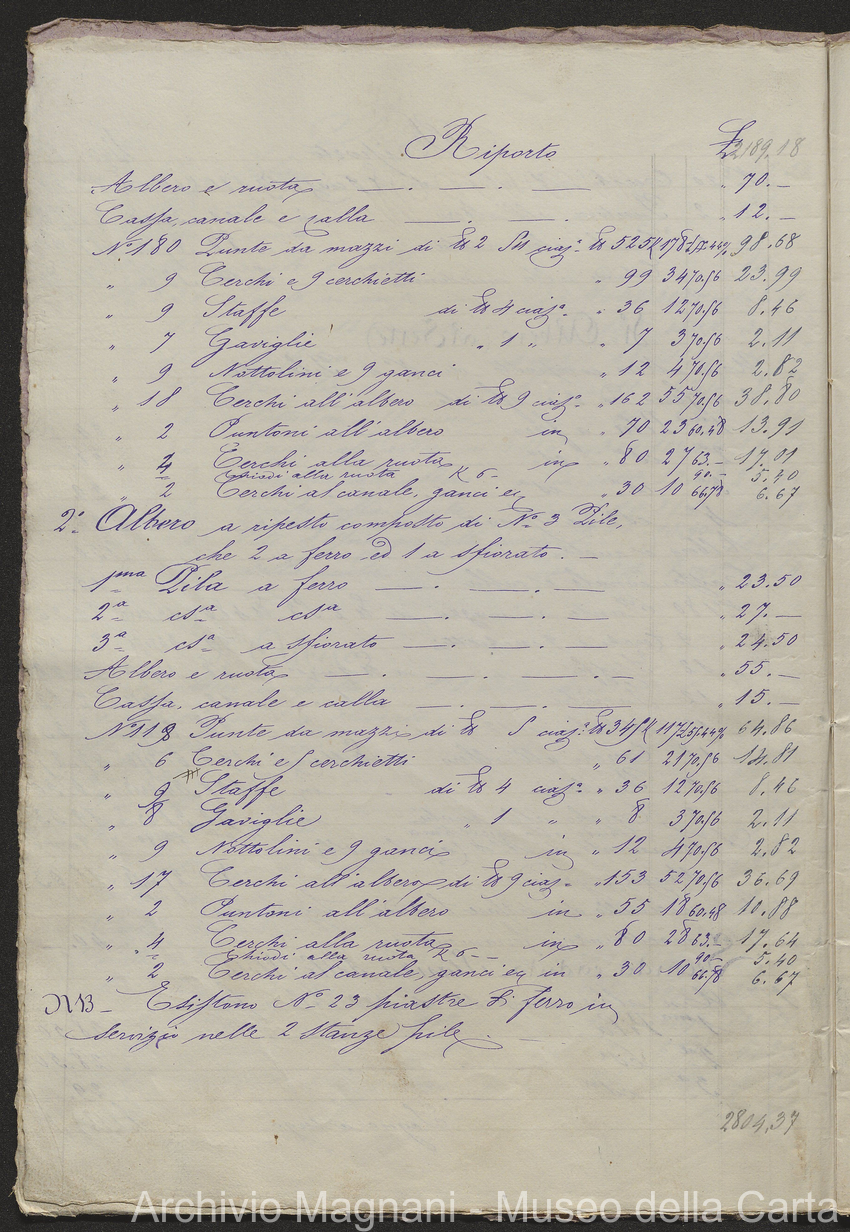 Riporto £ 2189.18
Albero e ruota — . — . — „ 70. —
Cassa, canale e calla — . — . „ 12. —
N.º 180 Punte da mazzi di lb 2 ciasª lb 525 K 178 98.68
„ 9 Cerchi e 9 cerchietti „ 99 34 70.56 23.99
„ 9 Staffe di lb 4 ciasª „ 36 12 70.56 8.46
„ 7 Gaviglie „ 1 „ „ 7 3 70.56 2.11
„ 9 Nottolini e 9 ganci „ 12 4 70.56 2.82
„ 18 Cerchi all'albero di lb 9 ciasª „ 162 55 70.56 38.80
„ 2 Puntoni all'albero in „ 70 23 60.48 13.91
„ 4 Cerchi alla ruota in „ 80 27 63. — 17.01
Chiodi alla ruota K 6 — 90. — 5.40
„ 2 Cerchi al canale, ganci e „ 30 10 66.78 6.67
2º Albero a ripesto composto di Nº 3 Pile,
che 2 a ferro ed 1 a sfiorato. —
1ma Pila a ferro — . — . — „ 23.50
2ª csª csª — . — . — „ 27. —
3ª csª a sfiorato — . — . — „ 24.50
Albero e ruota — . — . — . — „ 55. —
Cassa, canale e calla — . — . — „ 15. —
Nº 118 Punte da mazzi di lb ciasª lb 345 K 117 64.86
„ 6 Cerchi e 5 cerchietti „ 61 21 70.56 14.81
„ 9 Staffe di lb 4 ciasª „ 36 12 70.56 8.46
„ 8 Gaviglie „ 1 „ „ 8 3 70.56 2.11
„ 9 Nottolini e 9 ganci in „ 12 4 70.56 2.82
„ 17 Cerchi all'albero di lb 9 cias „ 153 52 70.56 36.69
„ 2 Puntoni all'albero in „ 55 18 60.48 10.88
„ 4 Cerchi alla ruota in „ 80 28 63. — 17.64
Chiodi alla ruota K 6 — 90 — 5.40
„ 2 Cerchi al canale ganci e in „ 30 10 66.78 6.67
NB — Esistono Nº 23 piastre di ferro in
servizio nelle 2 stanze pile . —
2804.37
Archivio Magnani - Museo della Carta